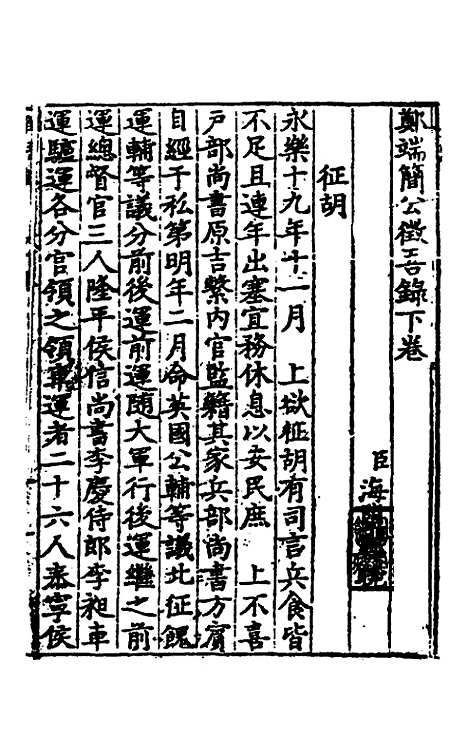 鄭端簡公徵吾錄下卷
臣海
征胡
永樂十九年十一月　上欲征胡有司言兵食皆
不足且連年出塞宜務休息以安民庶　上不喜
戶部尚書原吉繫內官監籍其家兵部尚書方賓
自經于私第明年二月命英國公輔等議北征餽
運輔等議分前後運前運隨大軍行後運繼之前
運總督官三人隆平侯信尚書李慶侍郎李昶車
運驢運各分官領之領車運者二十六人泰寧侯